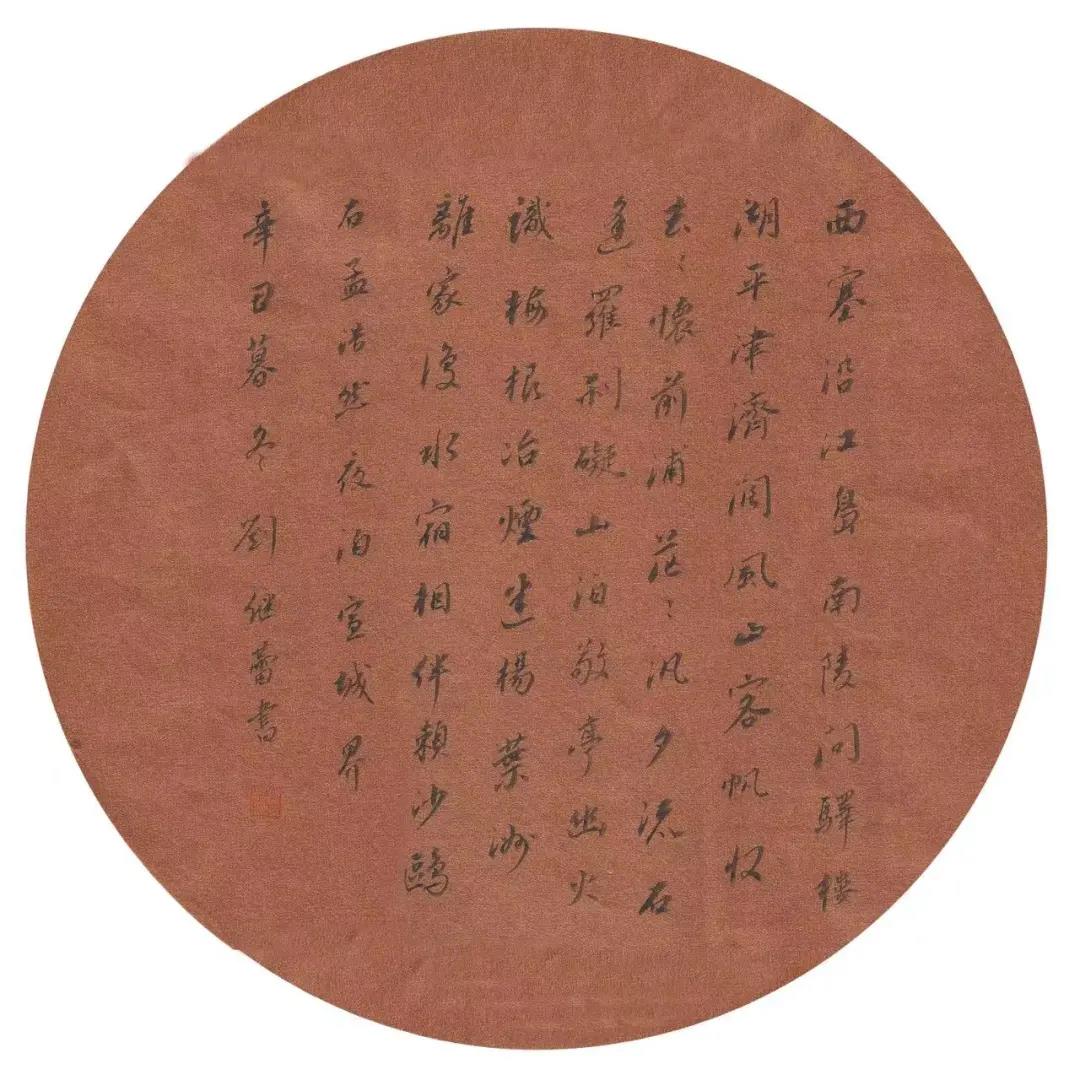 西塞沿江島南陵問驛樓
湖平津濟闊風止客帆收
去〻懷前浦茫〻汎夕流石
逢羅剎礙山泊敬亭幽火
識梅根冶煙迷楊葉洲
離家復水宿相伴賴沙鷗
右孟浩然夜泊宣城界
辛丑暮冬劉继蕾書